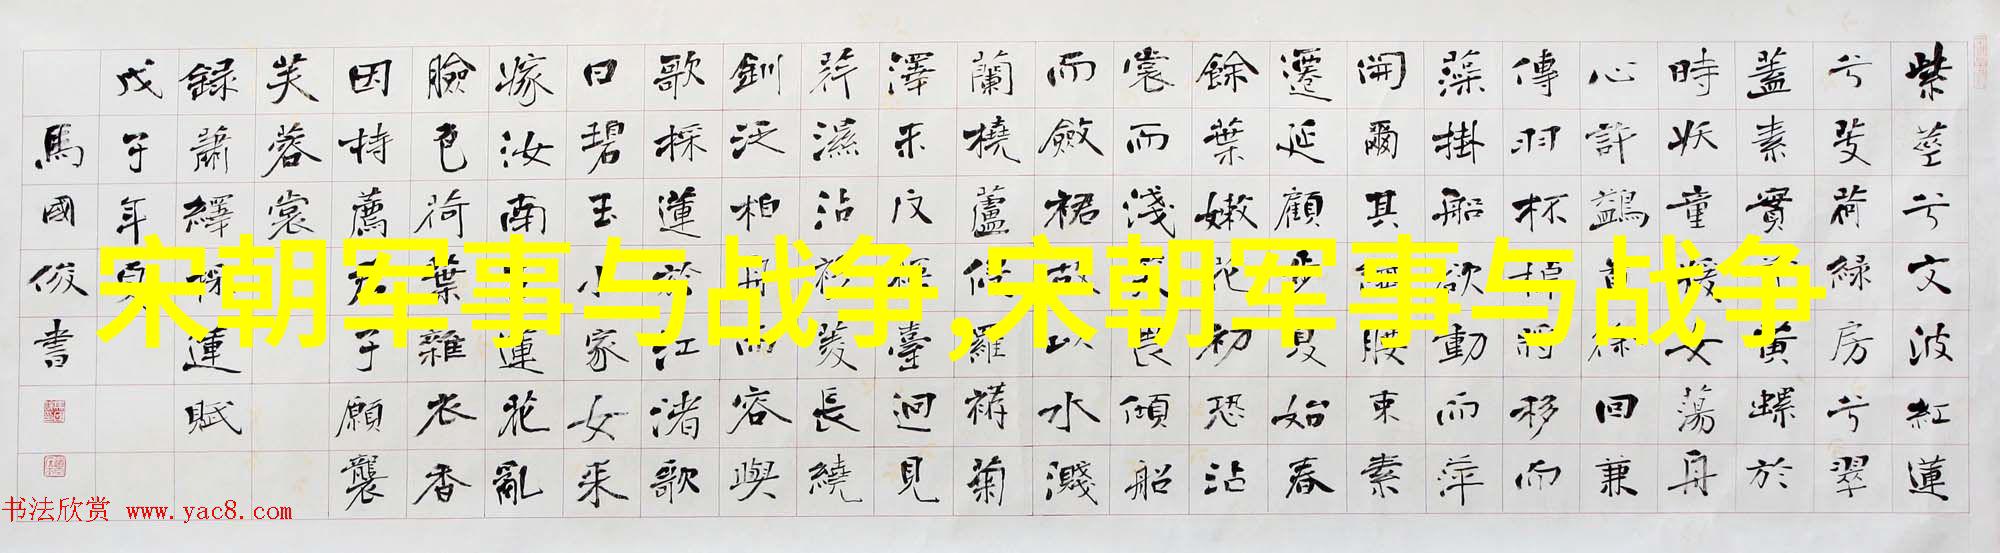 紫莖兮文波紅蓮
兮芰荷綠房兮翠
蓋素實兮黃螺於
時妖童媛女蕩舟
心許鷁首徐回兼
傳羽杯棹將移而
藻掛船欲動而萍
開爾其纖腰束素
遷延顧步夏始春
餘葉嫩花初恐沾
裳而淺笑畏傾船
而斂裾故以水濺
蘭橈蘆侵羅褠菊
澤未反梧臺迥見
荇濕沾衫菱長繞
釧泛柏舟而容與
歌採蓮於江渚歌
曰碧玉小家女來
嫁汝南王蓮花亂
臉色荷葉雜衣香
因持薦君子願襲
芙蓉裳
錄蕭繹採蓮賦
戊子年夏
馬國俊書
宋朝军事与战争,宋朝军事与战争
书法欣赏 www.yac8.com